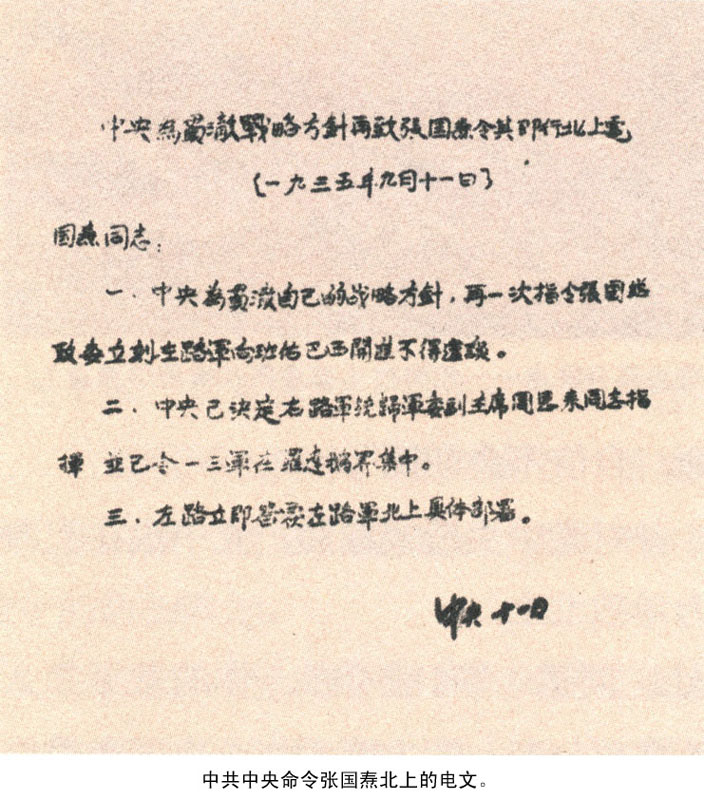 中央為貫澈戰略方針再致張国焘令其即行北上電
(一九三五年九月十一日)
国焘同志：
一．中央為貫澈自己的战略方針，再一次指令張国焘
政委立刻左路軍向班佑巴西開進不得違誤。
二．中央已決定右路軍統歸軍委副主席周恩来同志指
揮 並已令一三軍在羅達 界集中。
三．左路立即答覆左路軍北上具体部署。
中央 十一日
中共中央命令张国焘北上的电文。